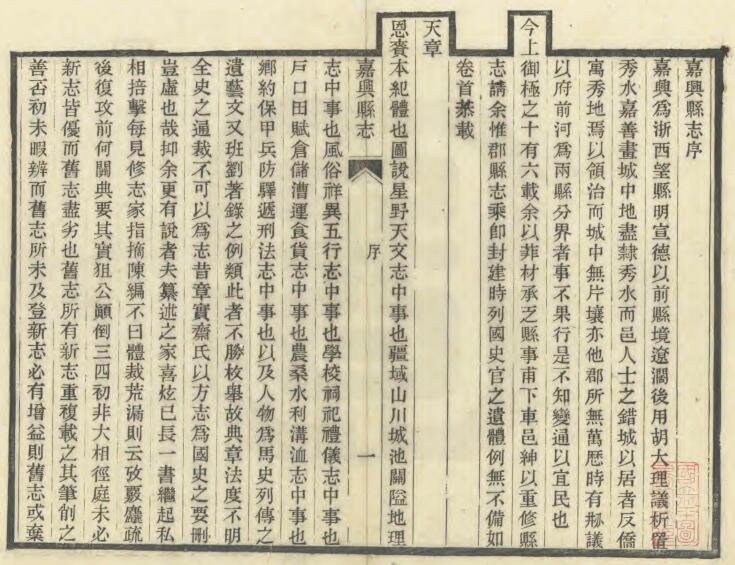 嘉興縣志序
嘉興爲浙西望縣明宣德以前縣境遼濶後用胡大理議析置
秀水嘉善畫城中地盡隸秀水而邑人士之錯城以居者反僑
寓秀地焉以領治而城中無片壤亦他郡所無萬厯時有刱議
以府前河爲兩縣分界者事不果行是不知變通以宜民也
今上御極之十有六載余以菲材承乏縣事甫下車邑紳以重修縣
志請余惟郡縣志乘卽封建時列國史官之遺體例無不備如
卷首恭載
天章
恩賚本紀體也圖說星野天文志中事也疆域山川城池關隘地理
嘉興縣志
序
一
志中事也風俗祥異五行志中事也學校祠祀禮儀志中事也
戶口田賦倉儲漕運食貨志中事也農桑水利溝洫志中事也
鄉約保甲兵防驛遞刑法志中事也以及人物爲馬史列傳之
遺藝文又班劉著錄之例類此者不勝枚舉故典章法度不明
全史之通裁不可以爲志昔章實齋氏以方志爲國史之要刪
豈虛也哉抑余更有說者夫纂述之家喜炫已長一書繼起私
相掊擊每見修志家指摘陳編不曰體裁荒漏則云攷覈麤疏
後復攻前何關典要其實狙公顚倒三四初非大相徑庭未必
新志皆優而舊志盡劣也舊志所有新志重複載之其筆削之
善否初未暇辨而舊志所未及登新志必有增益則舊志或棄